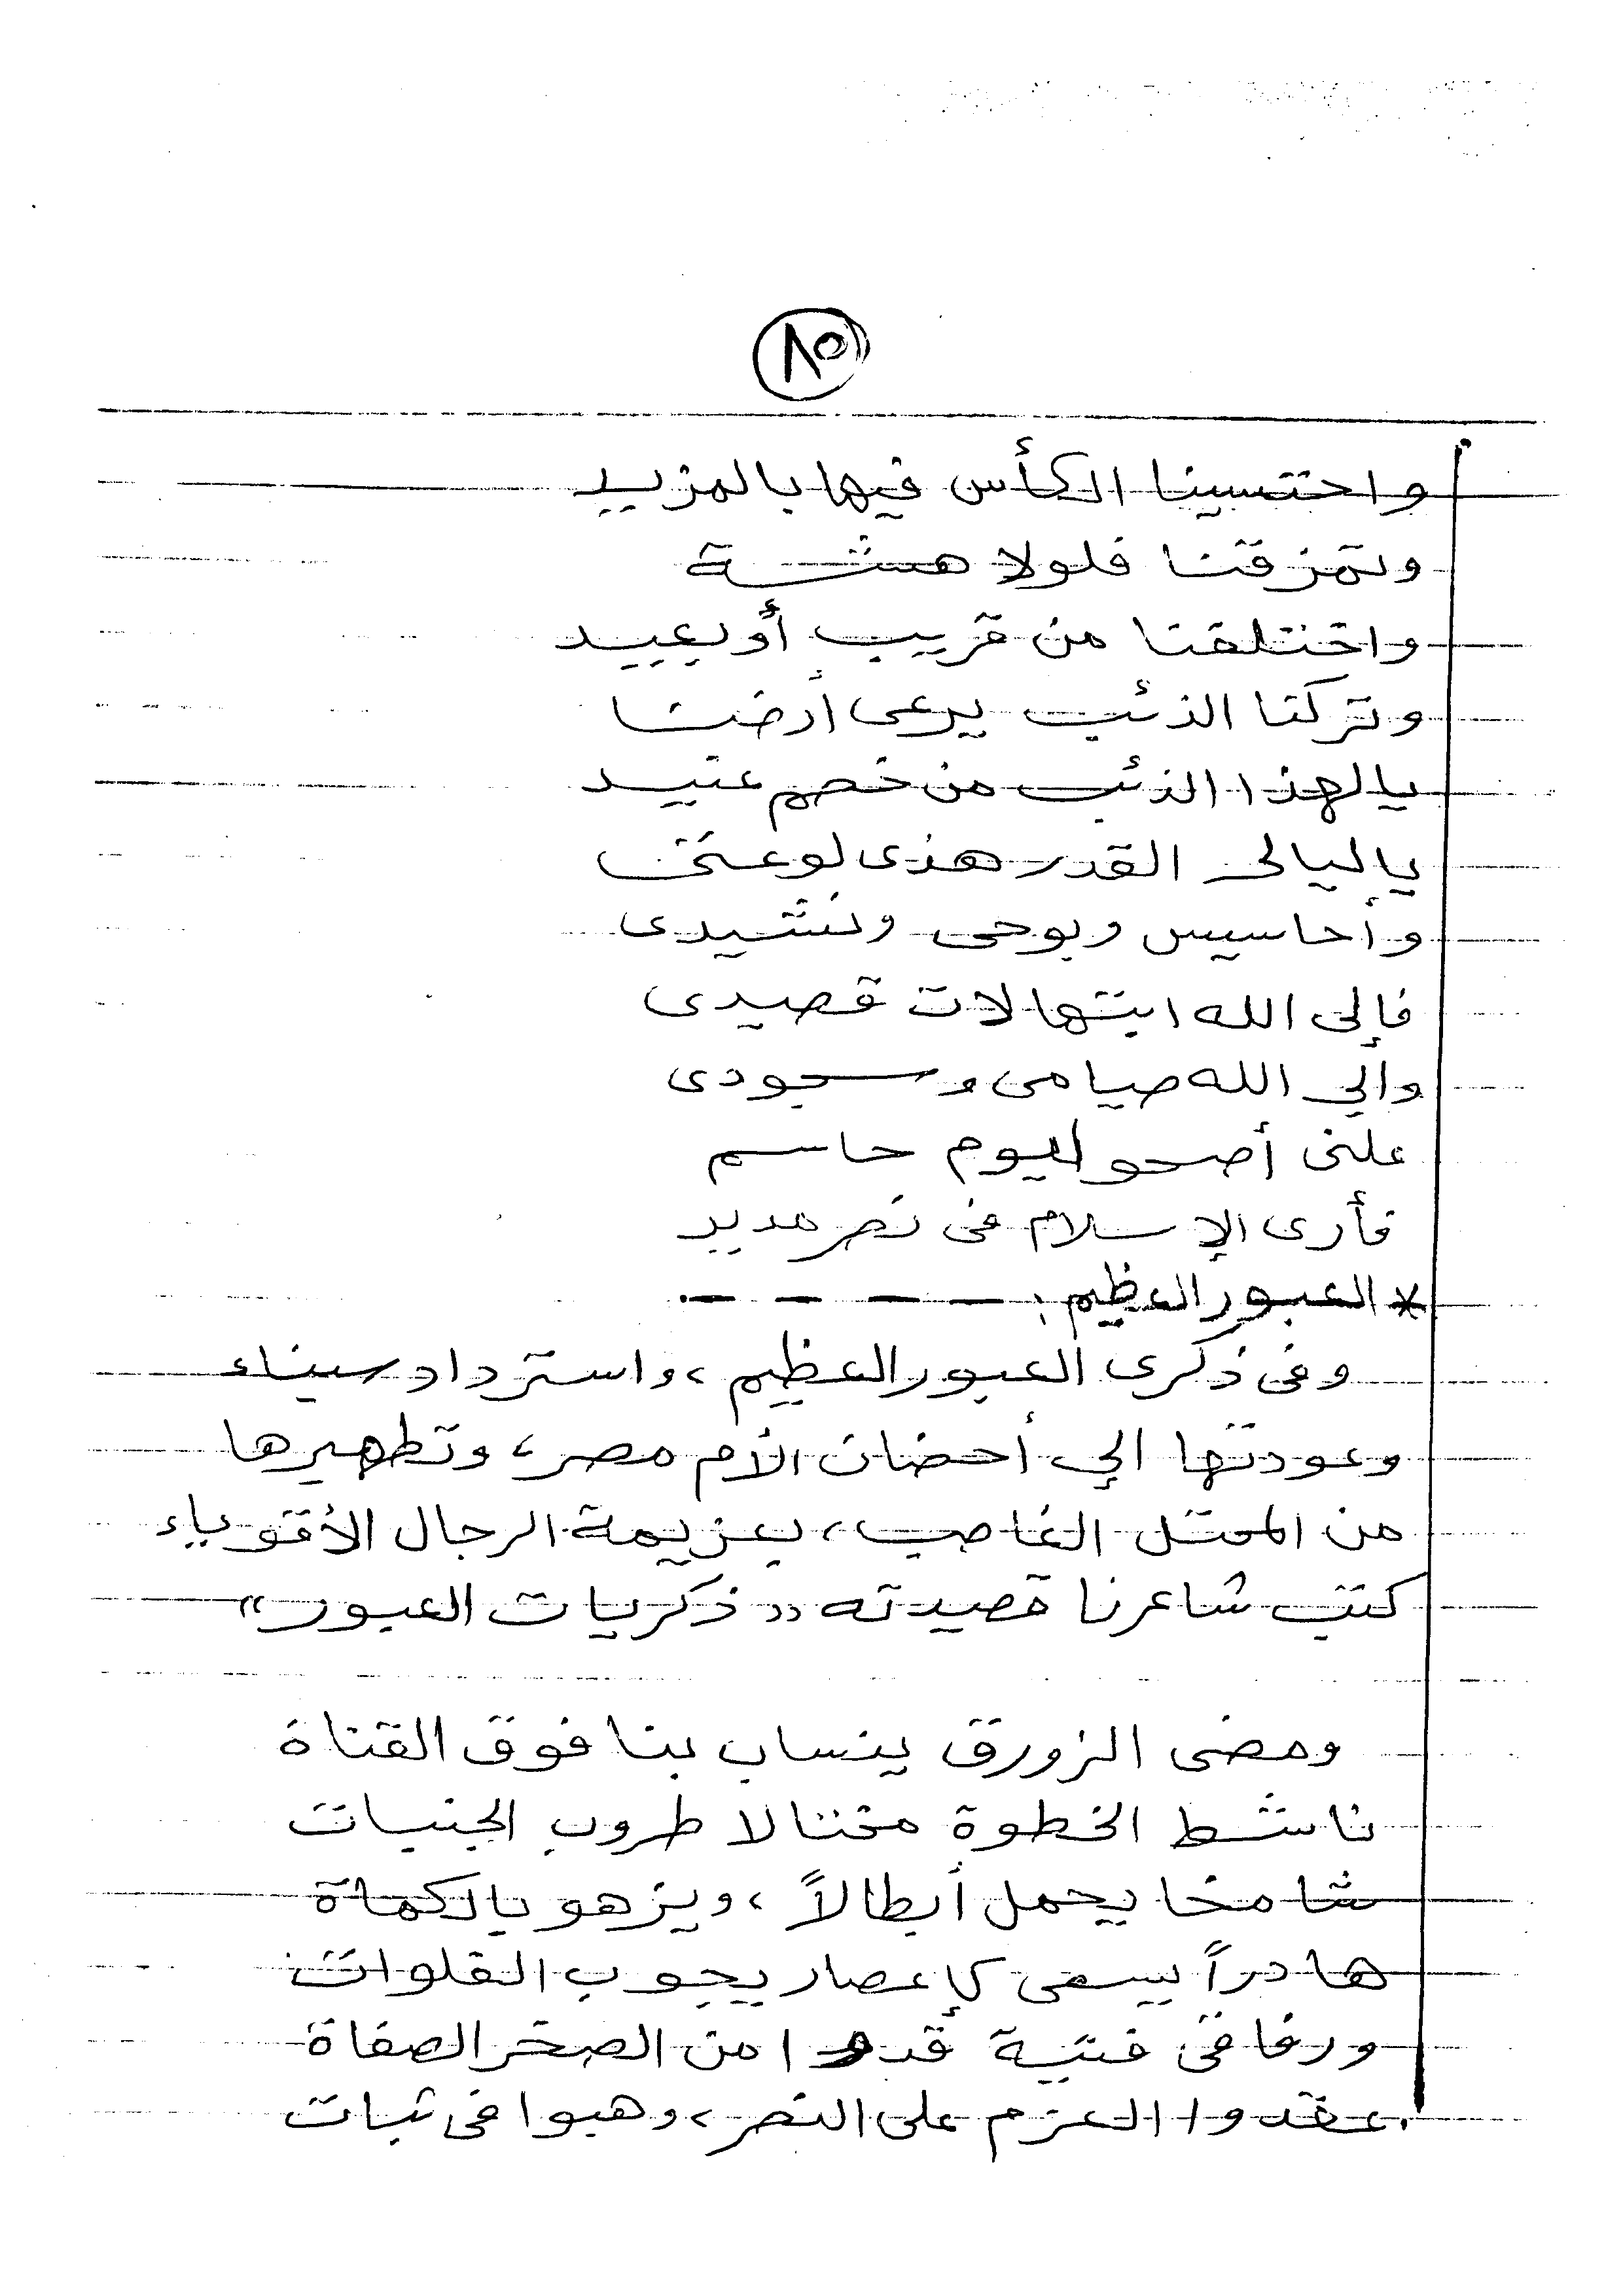 ٨٥
واحتسينا الكأس فيها بالمزيد
وتمزقنا فلولا هشة
واختلفنا من قريب أو بعيد
وتركنا الذئب يرعى أرضنا
يا لهذا الذئب من خصم عنيد
يا ليالى القدر هذى لوعتى
وأحاسيس وبوحى ونشيدى
فإلى الله ابتهالات قصيدى
وإلي الله صيامى وسجودى
علنى أصحو ليوم حاسم
فأرى الإسلام فى نصر مديد
* العبور العظيم: ـ ـ ـ ـ
وفى ذكرى العبور العظيم، واسترداد سيناء
وعودتها الي أحضان الأم مصر، وتطهيرها
من المحتل الغاصب، بعزيمة الرجال الأقوياء
كتب شاعرنا قصيدته «ذكريات العبور»
ومضى الزورق ينساب بنا فوق القناة
ناشط الخطوة مختالا طروب الجنبات
شامخا يحمل أبطالاً، ويزهو بالكماة
هادراً يسعى كإعصار يجوب الفلوات
ورفاقى فتية قدوا من الصخر الصفاة
عقدوا العزم على النصر، وهبوا فى ثبات